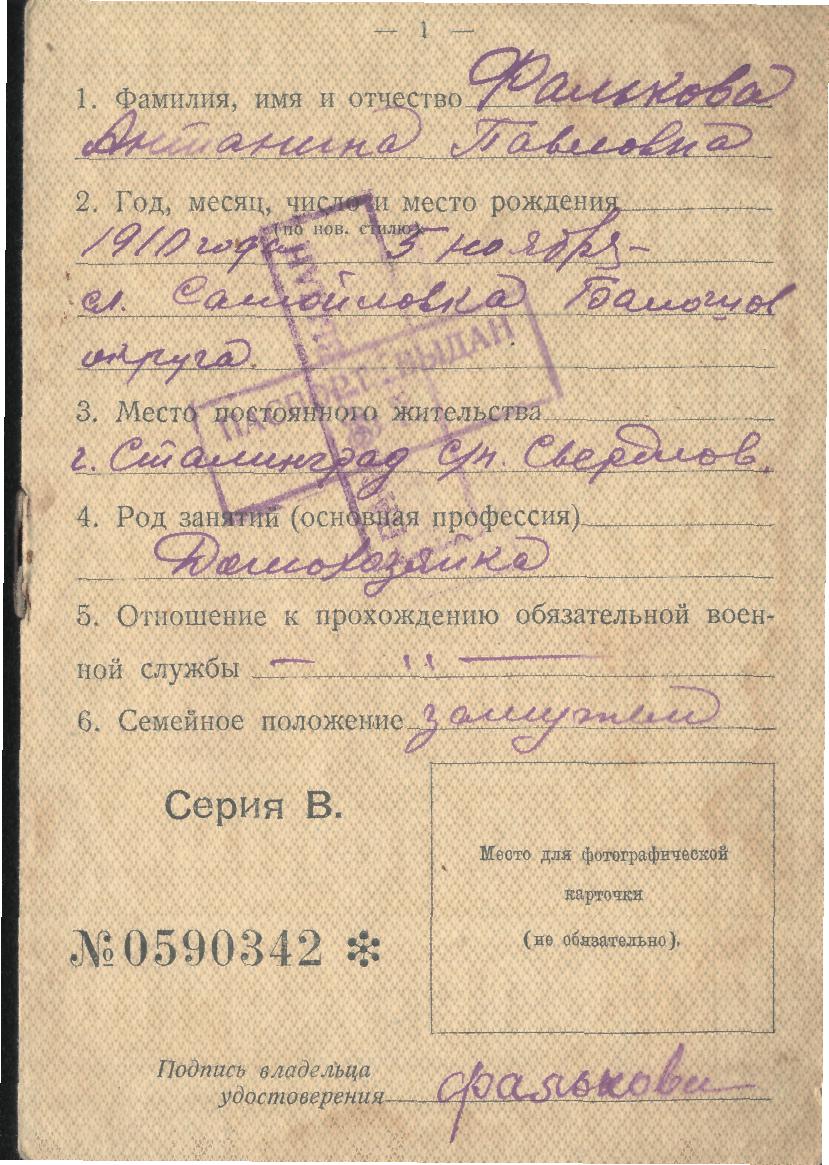 — 1 —
1. Фамилия, имя и отчество Фалькова
Антанина Павловна
2. Год, месяц, число и место рождения
(по нов. стилю)
1910 года 5 ноября
сл. Самойловка
округа.
3. Место постоянного жительства
г. Сталинград Свердлов.
4. Род занятий (основная профессия)
Домохозяйка
5. Отношение к прохождению обязательной воен-
ной службы — " —
6. Семейное положение замужем
ПАСПОРТ ВЫДАН
Серия В.
Место для фотографической
карточки
(не обязательно).
№ 0590342 *
Подпись владельца
удостоверения Фалькова